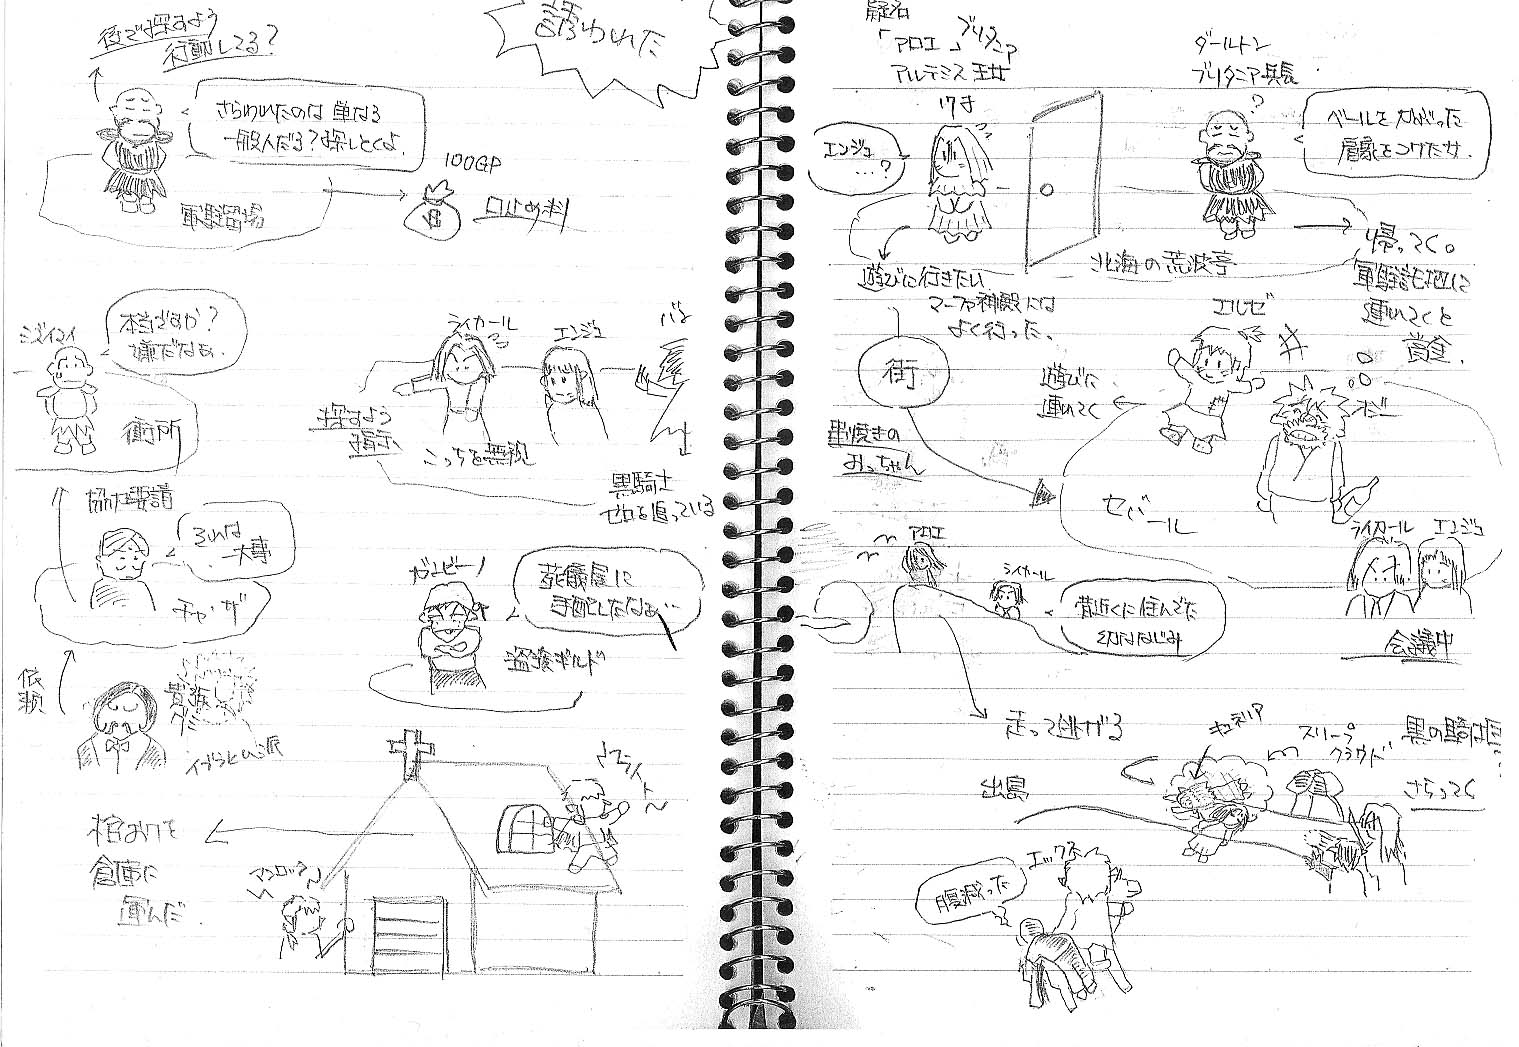 後で探すよう
行動してる?
誘われた
さらわれたのは単なる
一般人だろ?探しとくよ.
100GP
口止め料
軍駐留場
本当ですか?
嫌だなぁ.
衛所
協力要請
それは
一大事
チャ・ザ
依頼
貴族
ライカール
エンジュ
探すよう
指示
こっちを無視
黒騎士
ゼロを追っている
葬儀屋に
手配したなぁ…
盗賊ギルド
棺おけを
倉庫に
運んだ.
アンロック
フライト〜
疑名
「アロエ」
ブリタニア
アルテミス王女
17才
エンジュ
…?
ダールトン
ブリタニア兵長
?
ベールをかぶった
北海の荒波亭
遊びに行きたい
マーファ神殿には
よく行った、
帰ってく。
軍駐屯地に
連れてくと
賞金.
街
串焼きの
おっちゃん
エルゼ
遊びに
連れてく
セバール
ライカール
エンジュ
会議中
アロエ
ライカール
昔近くに住んでた
幼なじみ
走って逃げる
出島
スリープ
クラウド
さらってく
腹減った